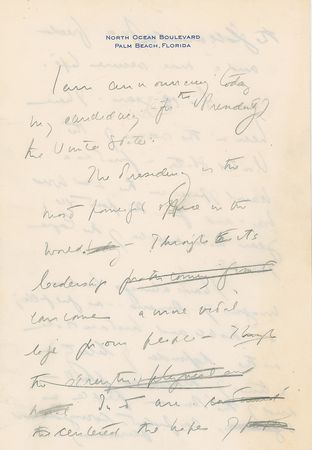 NORTH OCEAN BOULEVARD
PALM BEACH, FLORIDA
I am announcing today
my candidacy for the Presidency
the United States.
The Presidency is the
most powerful office in the
world. Through its
leadership
can come a more vital
life for our people – Though
the strength physical and
In it are
the centered the hopes of